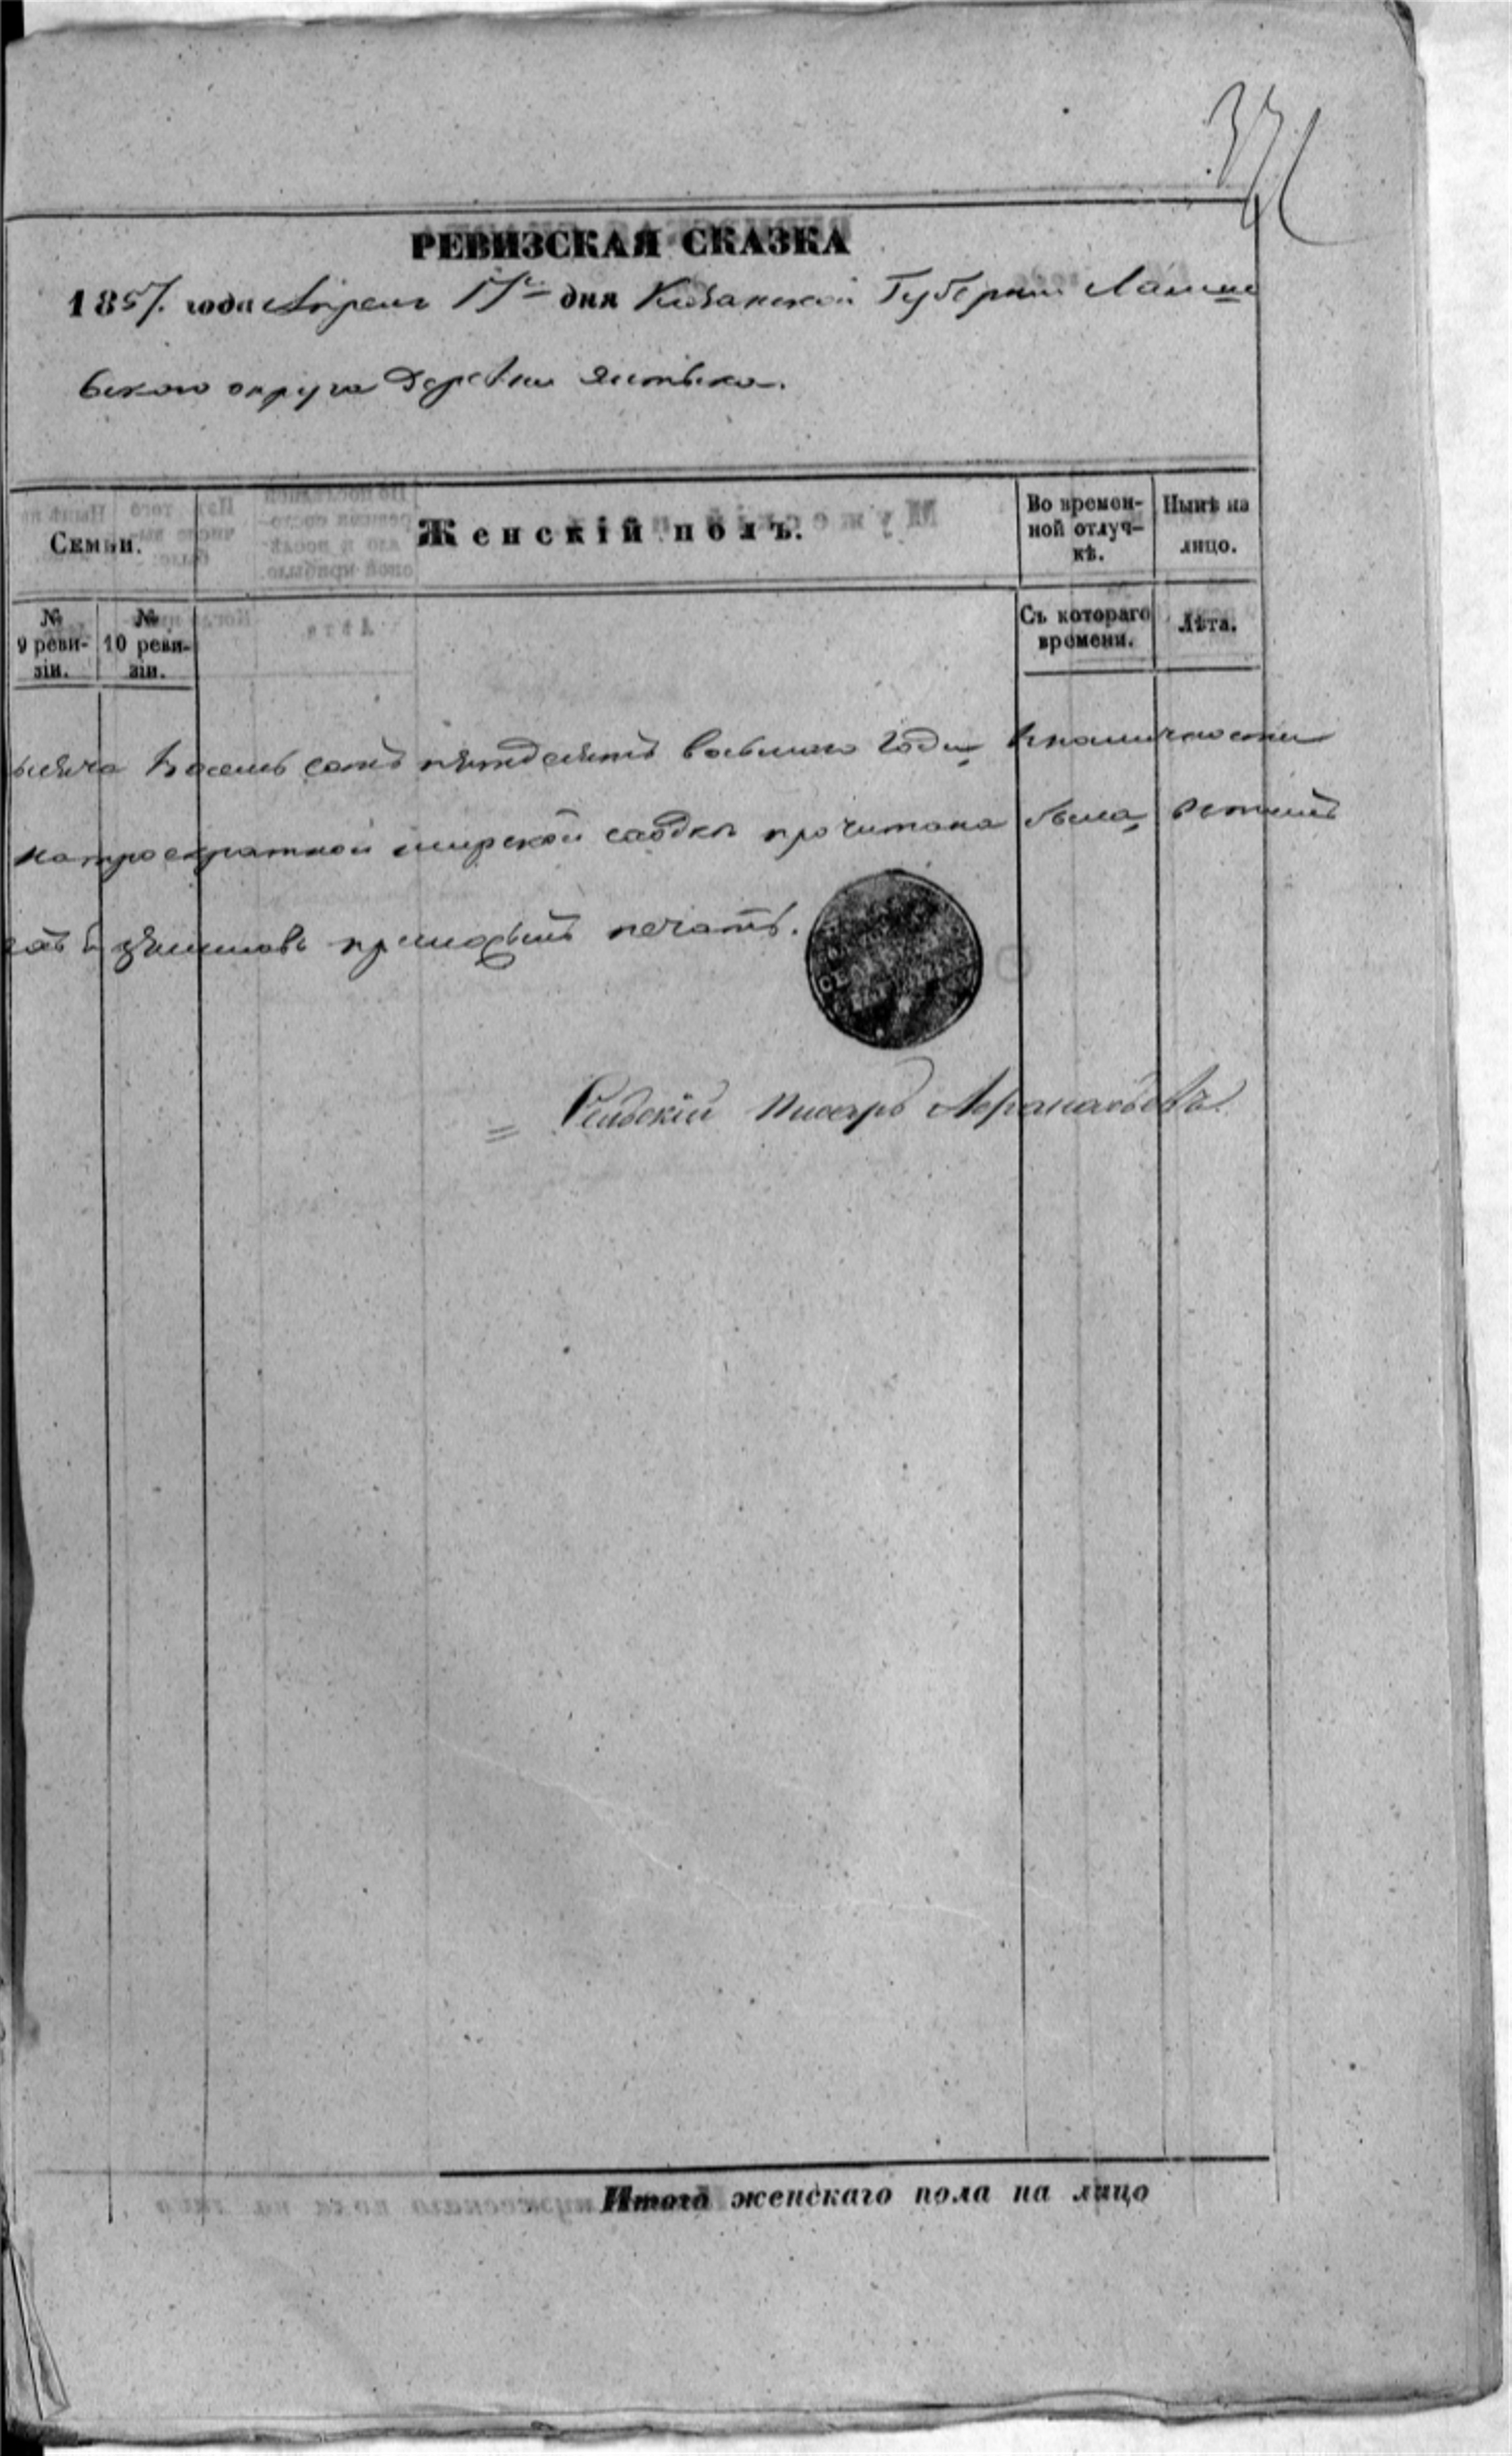 РЕВИЗСКАЯ СКАЗКА
1857. года Апреля 17го дня Казанской Губернии Лаише
вскаго округа Деревни Янтыка.
Семьи.
Женскій полъ.
Во времен-
ной отлуч-
кѣ.
Нынѣ на
лицо.
№
9 реви-
зіи.
№
10 реви-
зіи.
Съ котораго
времени.
Лѣта.
тысяча восемь сотъ пятдесятъ восьмаго года,
мирской сходкѣ прочитана была,
приложилъ печать.
Сельскій Писарь Афанасьевъ
Итого женскаго пола на лицо